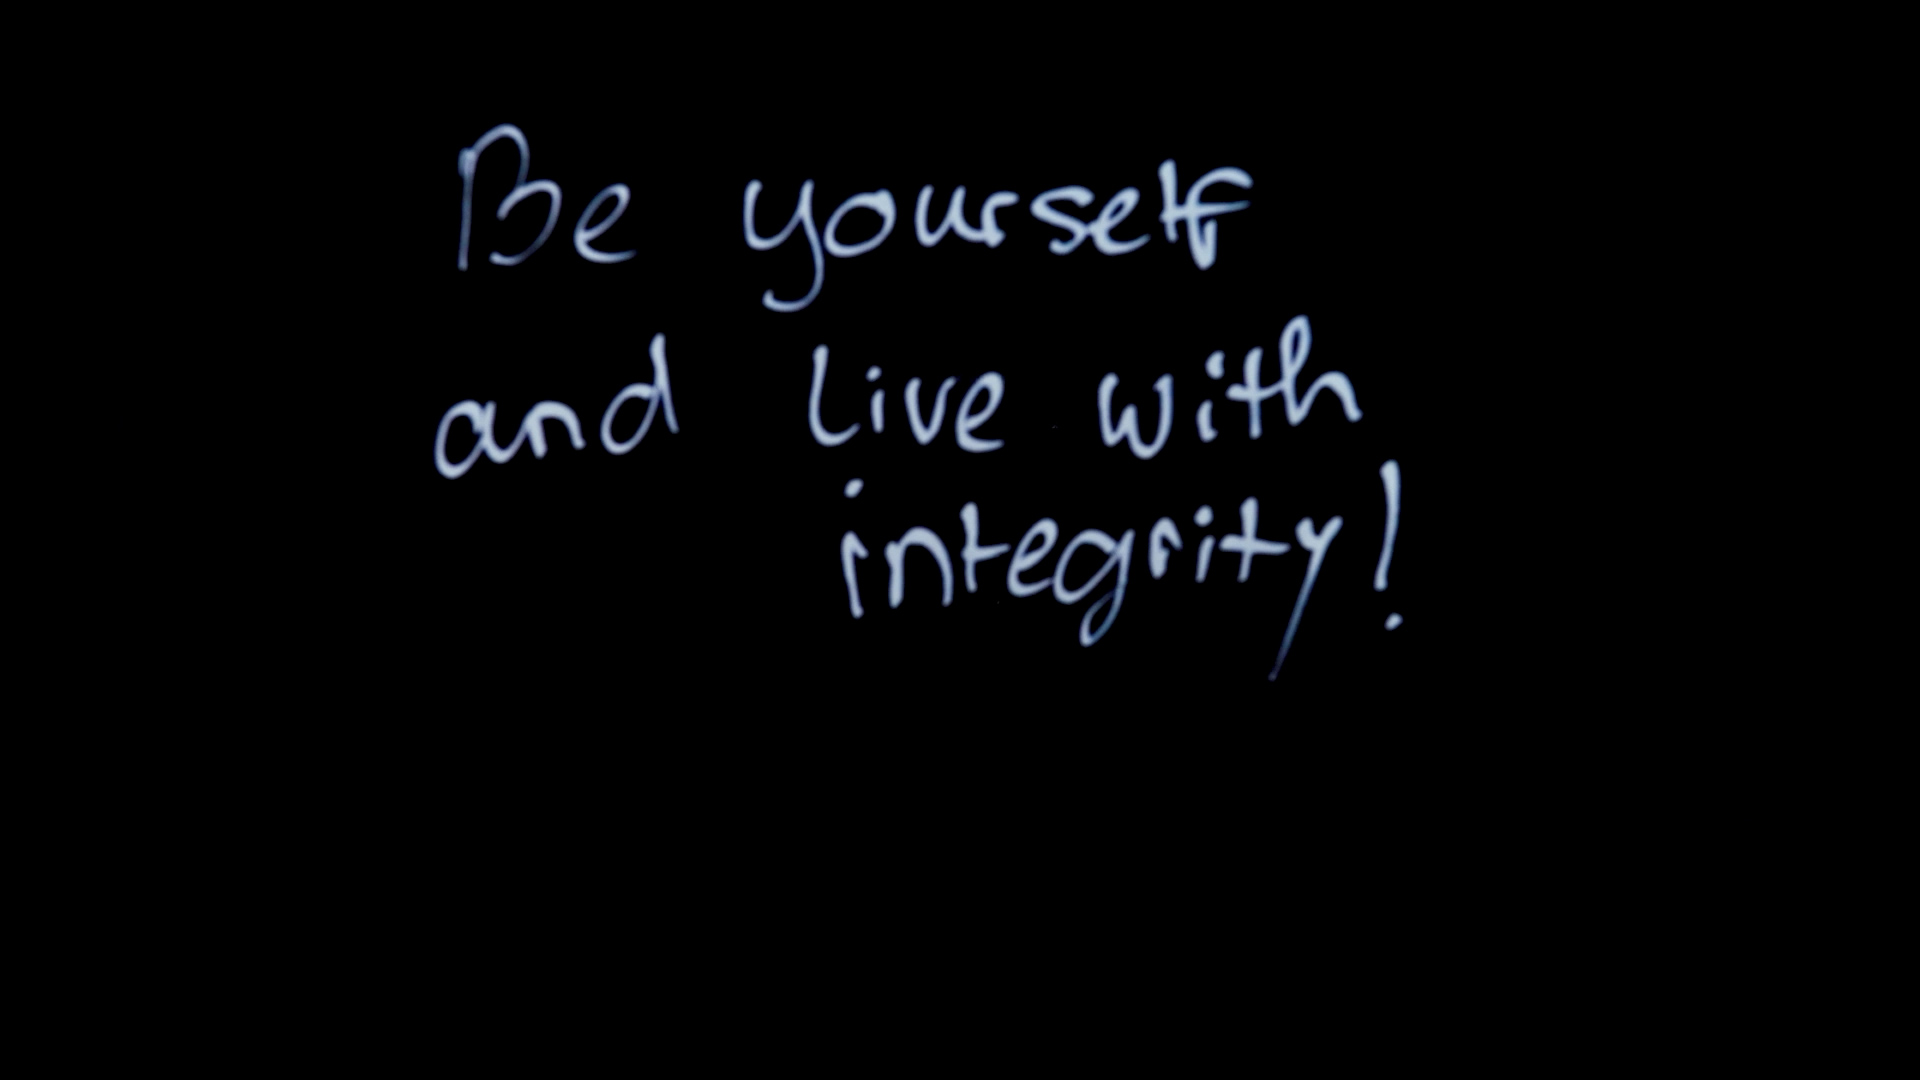 Be yourself
and live with
integrity!